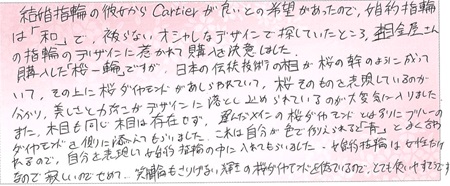 結婚指輪の彼女から Cartier が良いとの希望があったので、婚約指輪
は「和」で、被らないオシャレなデザインで探していたところ、杢目金屋さん
の指輪のデザインに惹かれて購入を決意しました。
購入した「桜一輪」ですが、日本の伝統技術の木目が桜の幹のように広がって
いて、その上に桜ダイヤモンドがあしらわれていて、桜そのものを表現しているのが
分かり、美しさと力強さがデザインに落とし込められているのが大変気に入りました。
また、木目も同じ木目は存在せず、選んだメインの桜ダイヤモンドとは別にブルーの
ダイヤモンドを側に添えてもらいました。これは自分が色で例えられると「青」とよく言わ
れるので、自分を表現し婚約指輪の中に入れてもらいました。婚約指輪は女性だけ
なので寂しいのでせめて。笑 輪もさりげない輝きの桜ダイヤモンドを使っているので、とても使いやすそうです